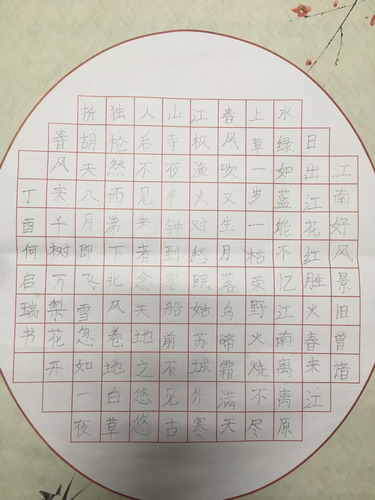 江南好风景旧曾谙
日出江花红胜火春来江
水绿如蓝能不忆江南离离原
上草一岁一枯荣野火烧不尽
春风吹又生月落乌啼霜满天
江枫渔火对愁眠姑苏城外寒
山寺夜半钟到客船前不见古
人后不见来者念天地之悠悠
独怆然而涕下北风卷地白草
折胡天八月即飞雪忽如一夜
春风来千树万梨花开
丁酉何启瑞书